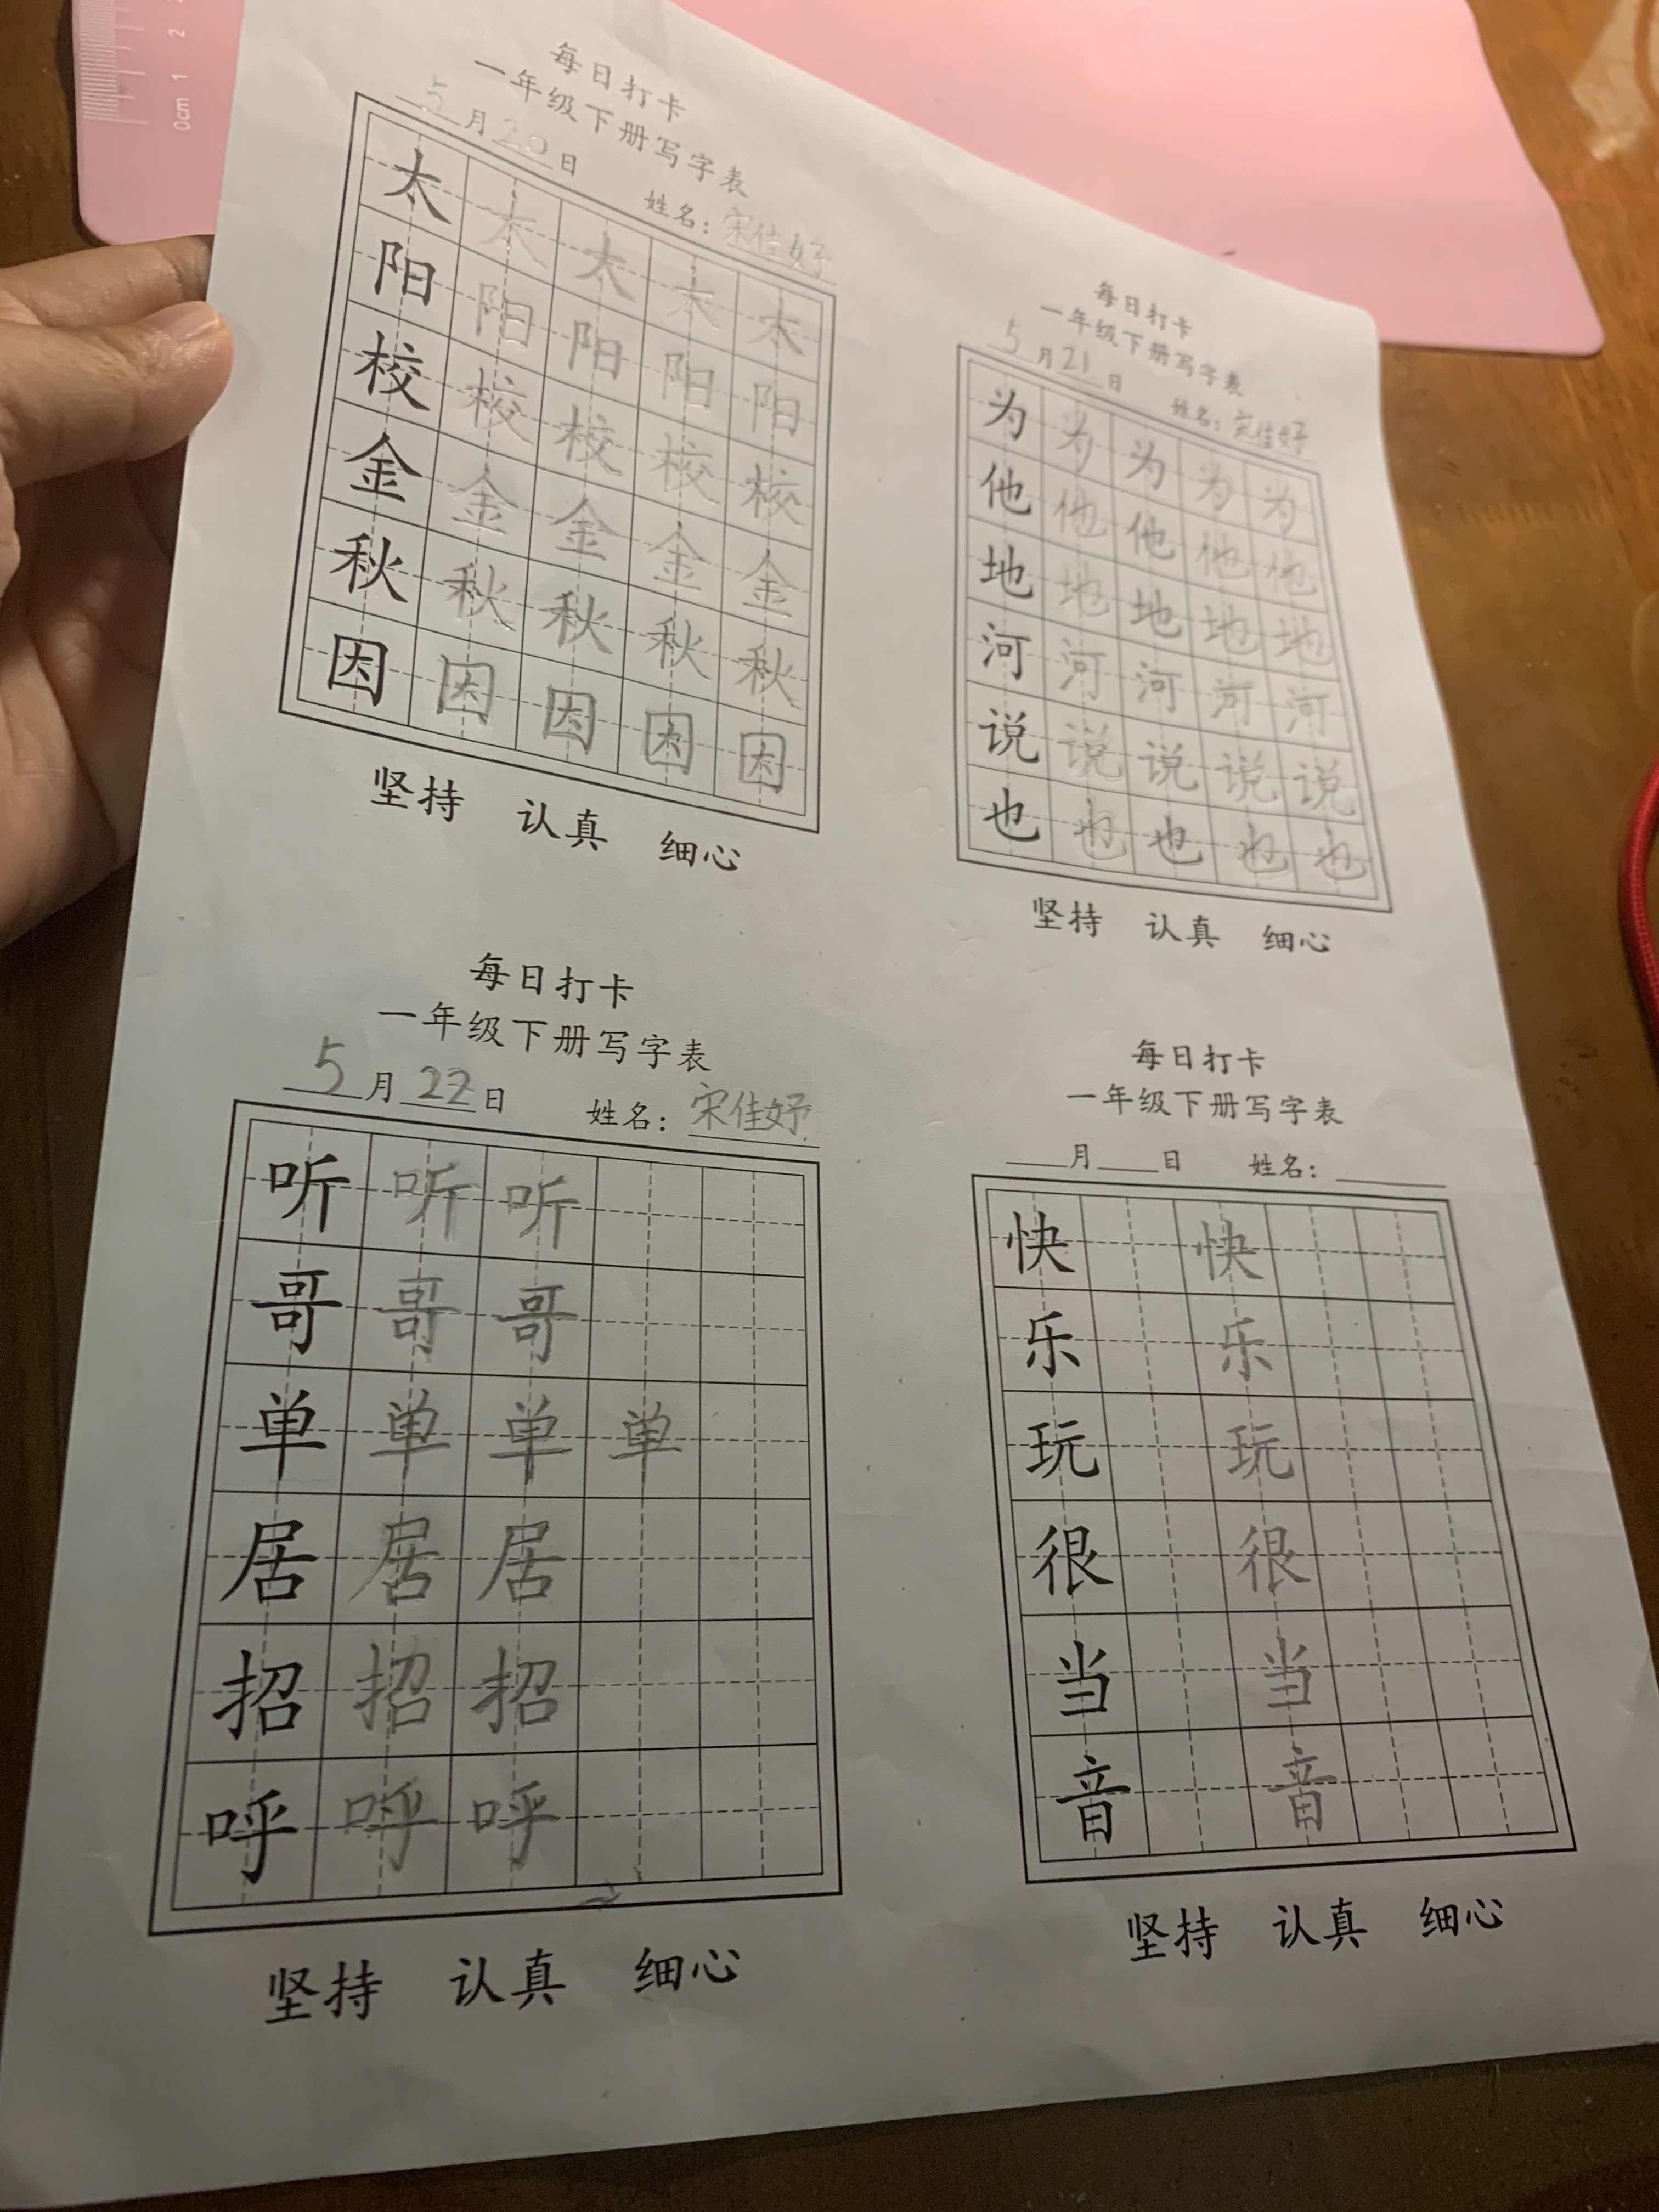 0cm 1 2
每日打卡
一年级下册写字表
5月20日 姓名：宋佳妤
太太太太太
阳阳阳阳阳
校校校校校
金金金金金
秋秋秋秋秋
因因因因因
坚持 认真 细心
每日打卡
一年级下册写字表
5月21日 姓名：宋佳妤
为为为为为
他他他他他
地地地地地
河河河河河
说说说说说
也也也也也
坚持 认真 细心
每日打卡
一年级下册写字表
5月22日 姓名：宋佳妤
听听听
哥哥哥
单单单单
居居居
招招招
呼呼呼
坚持 认真 细心
每日打卡
一年级下册写字表
月 日 姓名：
快快
乐乐
玩玩
很很
当当
音音
坚持 认真 细心